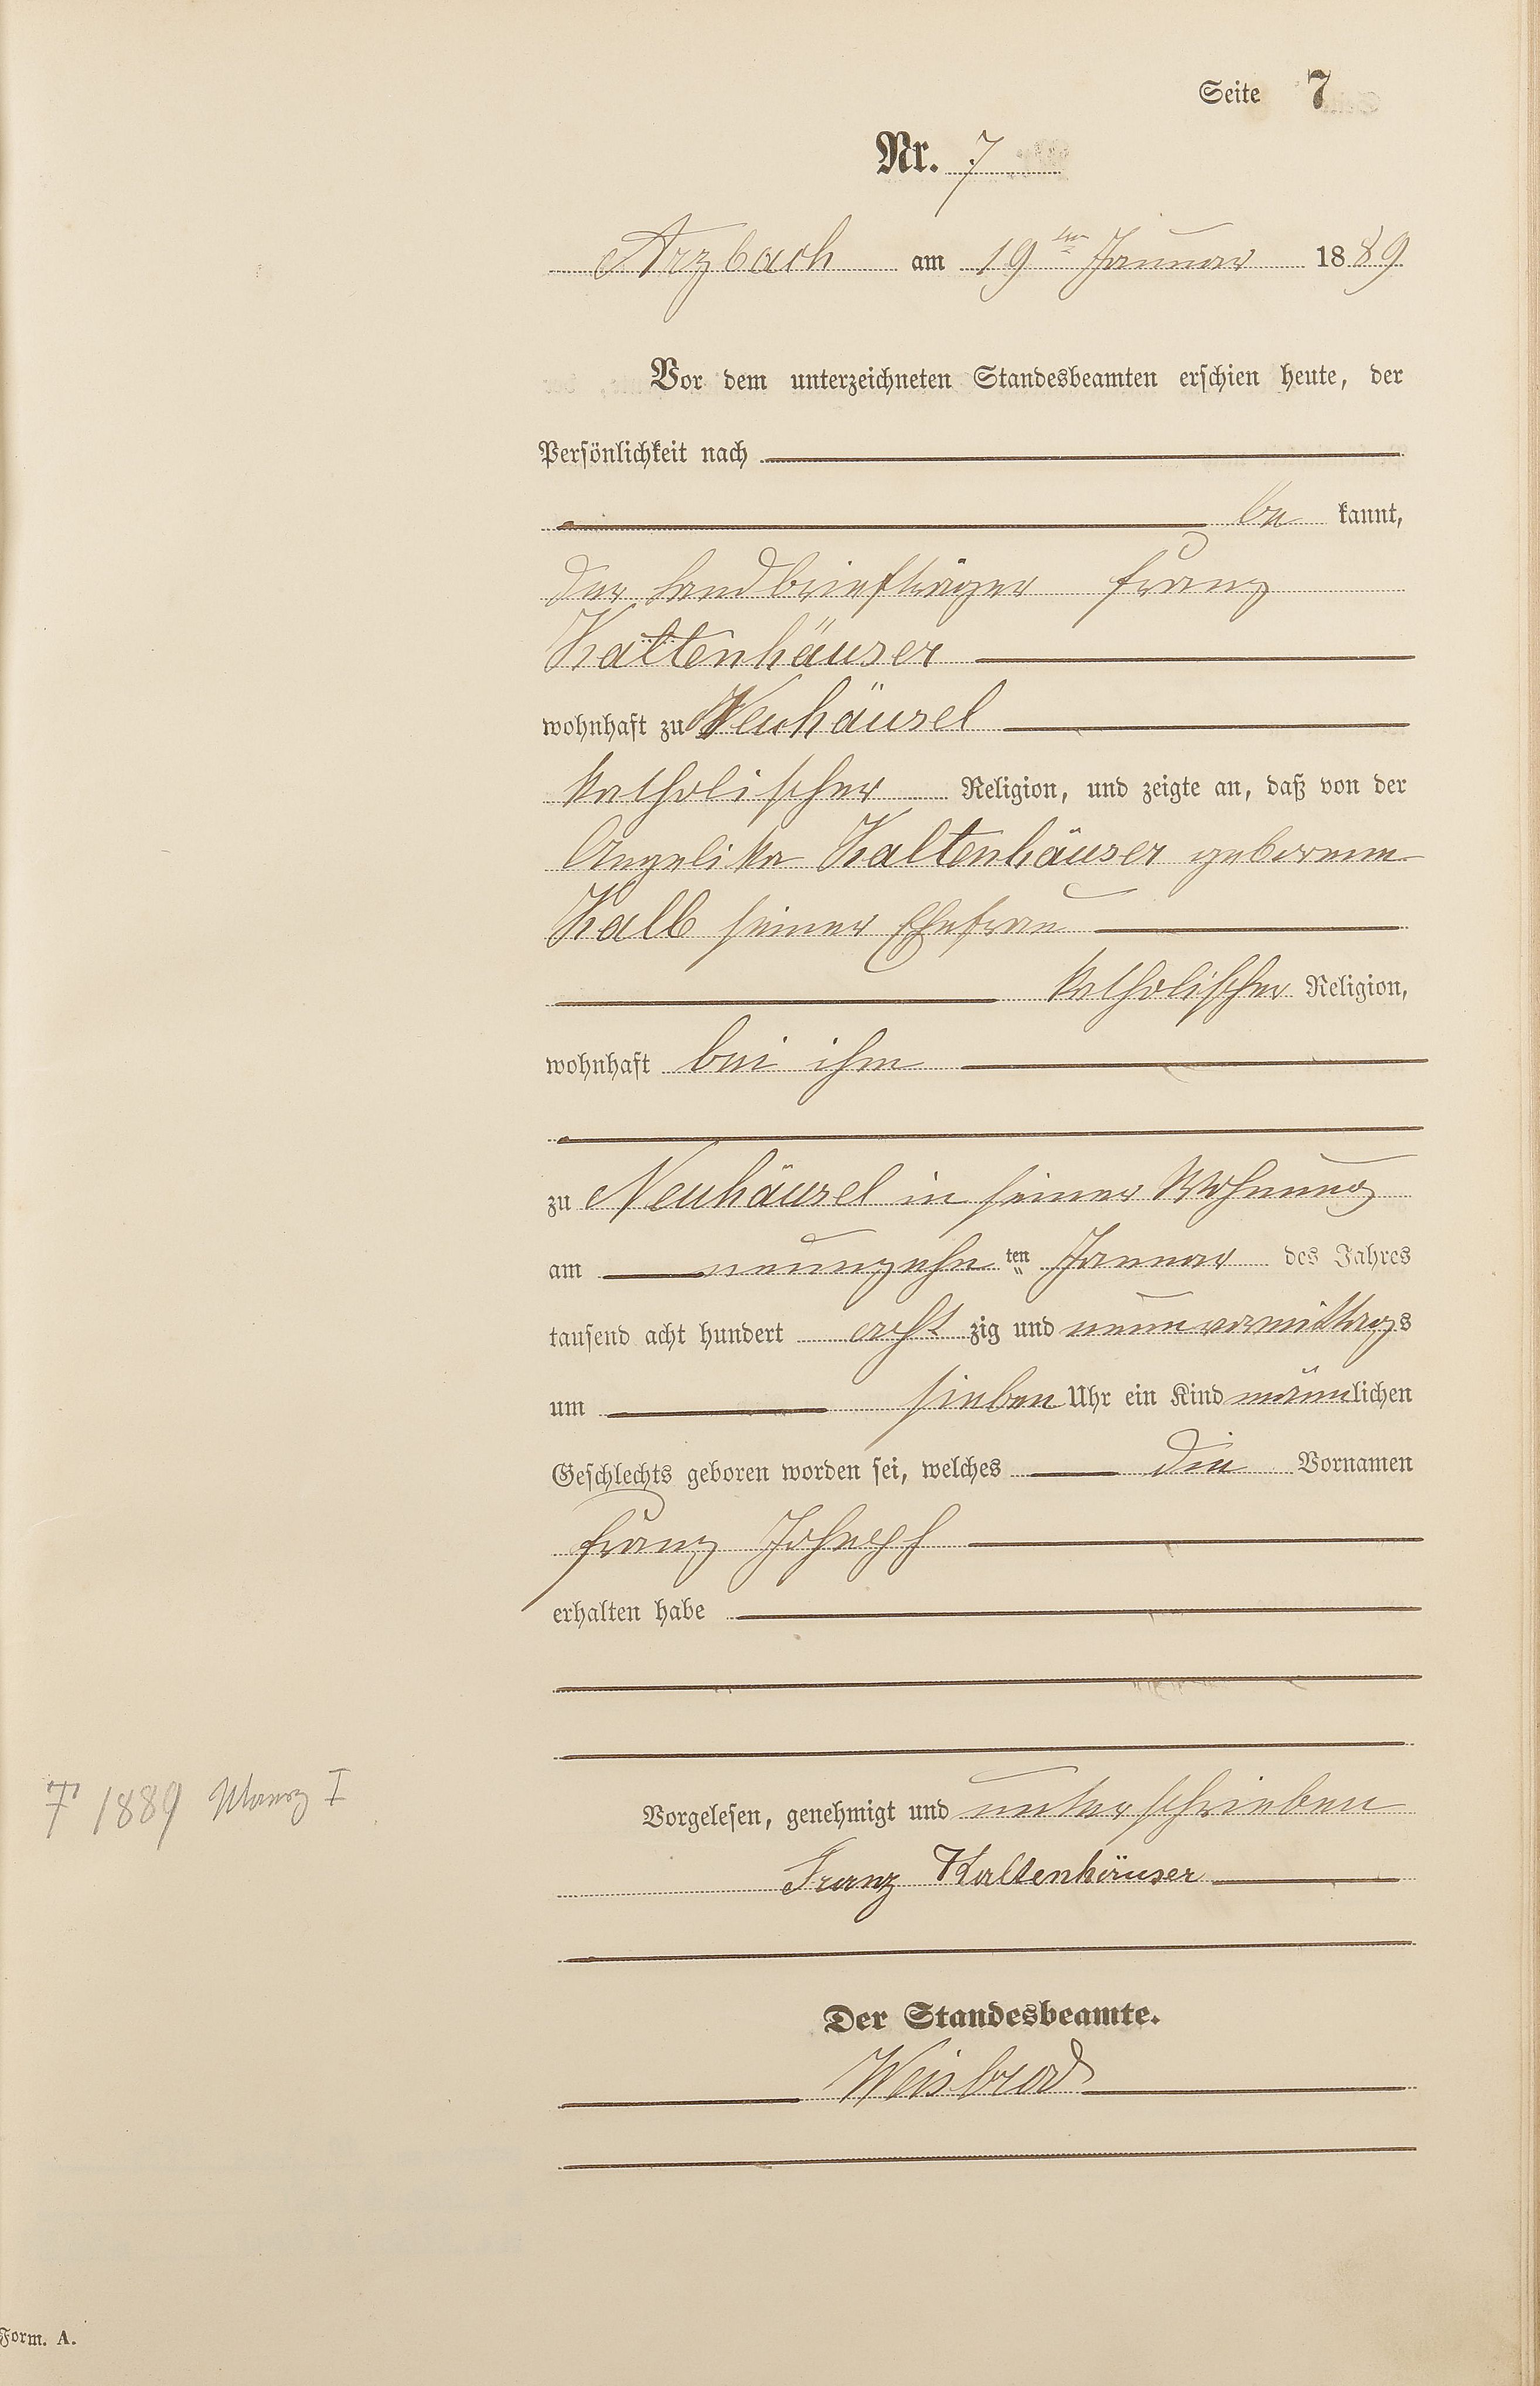 Seite 7
Nr. 7
Arzbach am 19ten Januar 1889
Vor dem unterzeichneten Standesbeamten erschien heute, der
Persönlichkeit nach
be kannt,
der Landbriefträger Franz
Kaltenhäuser
wohnhaft zu Neuhäusel
katholischer Religion, und zeigte an, daß von der
Angelika Kaltenhäuser geborenen
Kalb seiner Ehefrau
katholischer Religion,
wohnhaft bei ihm
zu Neuhäusel in seiner Wohnung
am neunzehn ten Januar des Jahres
tausend acht hundert acht zig und neun vormittags
um sieben Uhr ein Kind männlichen
Geschlechts geboren worden sei, welches die Vornamen
Franz Joseph
erhalten habe
† 1889 I
Vorgelesen, genehmigt und unterschrieben
Franz Kaltenhäuser
Der Standesbeamte.
Weisbrod
Form. A.